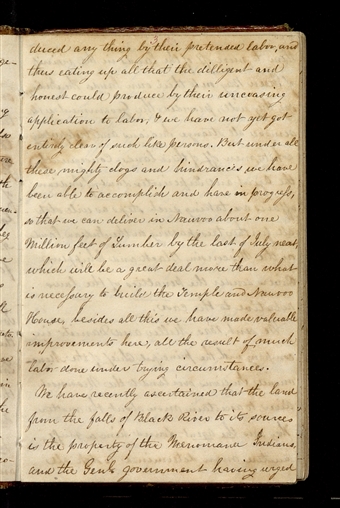 duced any thing by their pretended labor, and
thus eating up all that the dilligent and
honest could produce by their unceasing
application to labor, & we have not yet got
entirely clear of such like persons. But under all
these mighty clogs and hindrances we have
been able to accomplish and have in progress,
so that we can deliver in Nauvoo about one
Million feet of Lumber by the last of July next,
which will be a great deal more than what
is necessary to build the Temple and Nauvoo
House, besides all this we have made valuable
improvements here, all the result of much
labor done under trying circumstances.
We have recently ascertained that the land
from the falls of Black River to its sources
is the property of the Menomanee Indians,
and the Genl. government having urged